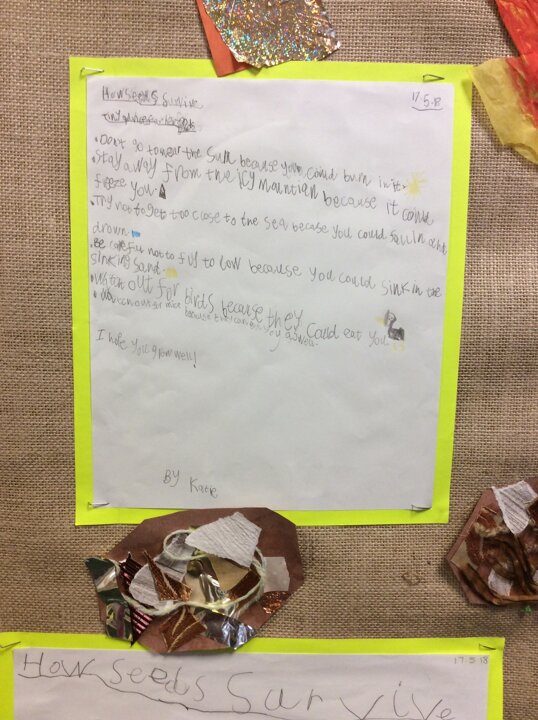 How seeds survive
17.5.18
• Don't go to near the sun because you could burn in it.
• Stay away from the icy mantian because it could
freeze you.
• Try not to get too close to the sea because you could fall in and
drown.
• Be careful not to fly to low because you could sink in the
sinking sand.
• Watch out for birds because they could eat you.
• Watch out for mice because they can
I hope you grow well!
By Katie
How Seeds Survive
17.5.18